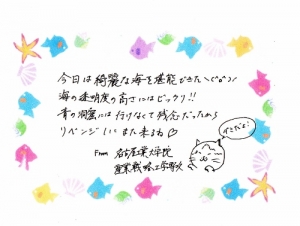 今日は綺麗な海を堪能できた＼(^o^)／
海の透明度の高さにはビックリ!!
青の洞窟には行けなくて残念だったから
リベンジしにまた来るね♡
From 名古屋工業大学院
産業戦略工学専攻